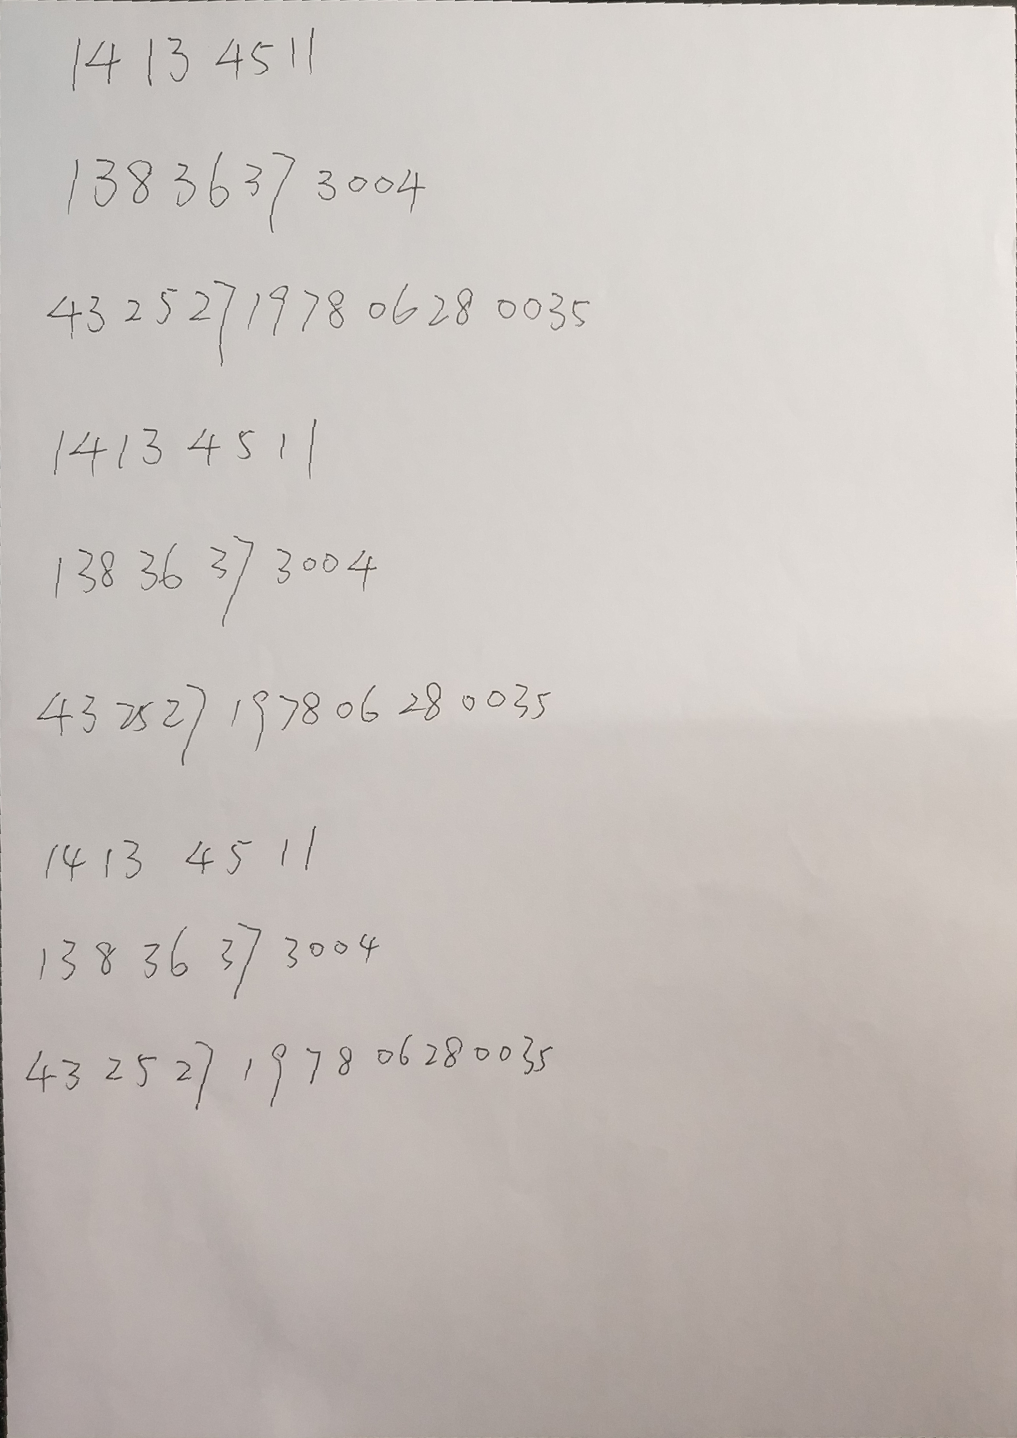 14 13 45 11
138 36 37 3004
43 25 27 1978 06 28 0035
1413 45 11
138 36 37 3004
43 25 27 1978 06 28 0035
1413 45 11
138 36 37 3004
43 25 27 1978 06 28 0035